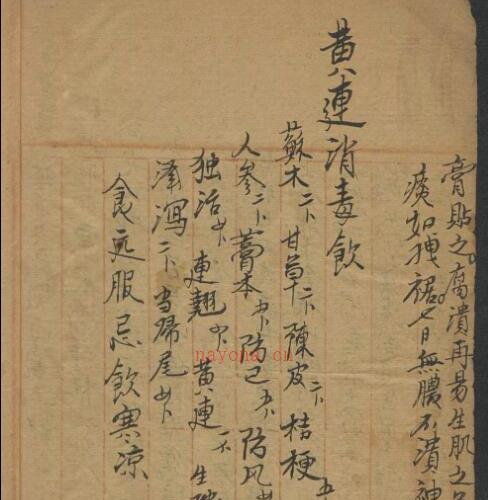 膏貼之腐潰再易生肌之
痰如拽裾七日無膿不潰神
黄連消毒飲
蘇木二卜甘草二卜陳皮二卜桔梗五
人參二卜藁本卜防已五卜防风
独活卜連翹卜黄連一卜生
澤瀉二卜当帰尾卜
食远服忌飲寒凉
nayona.cn